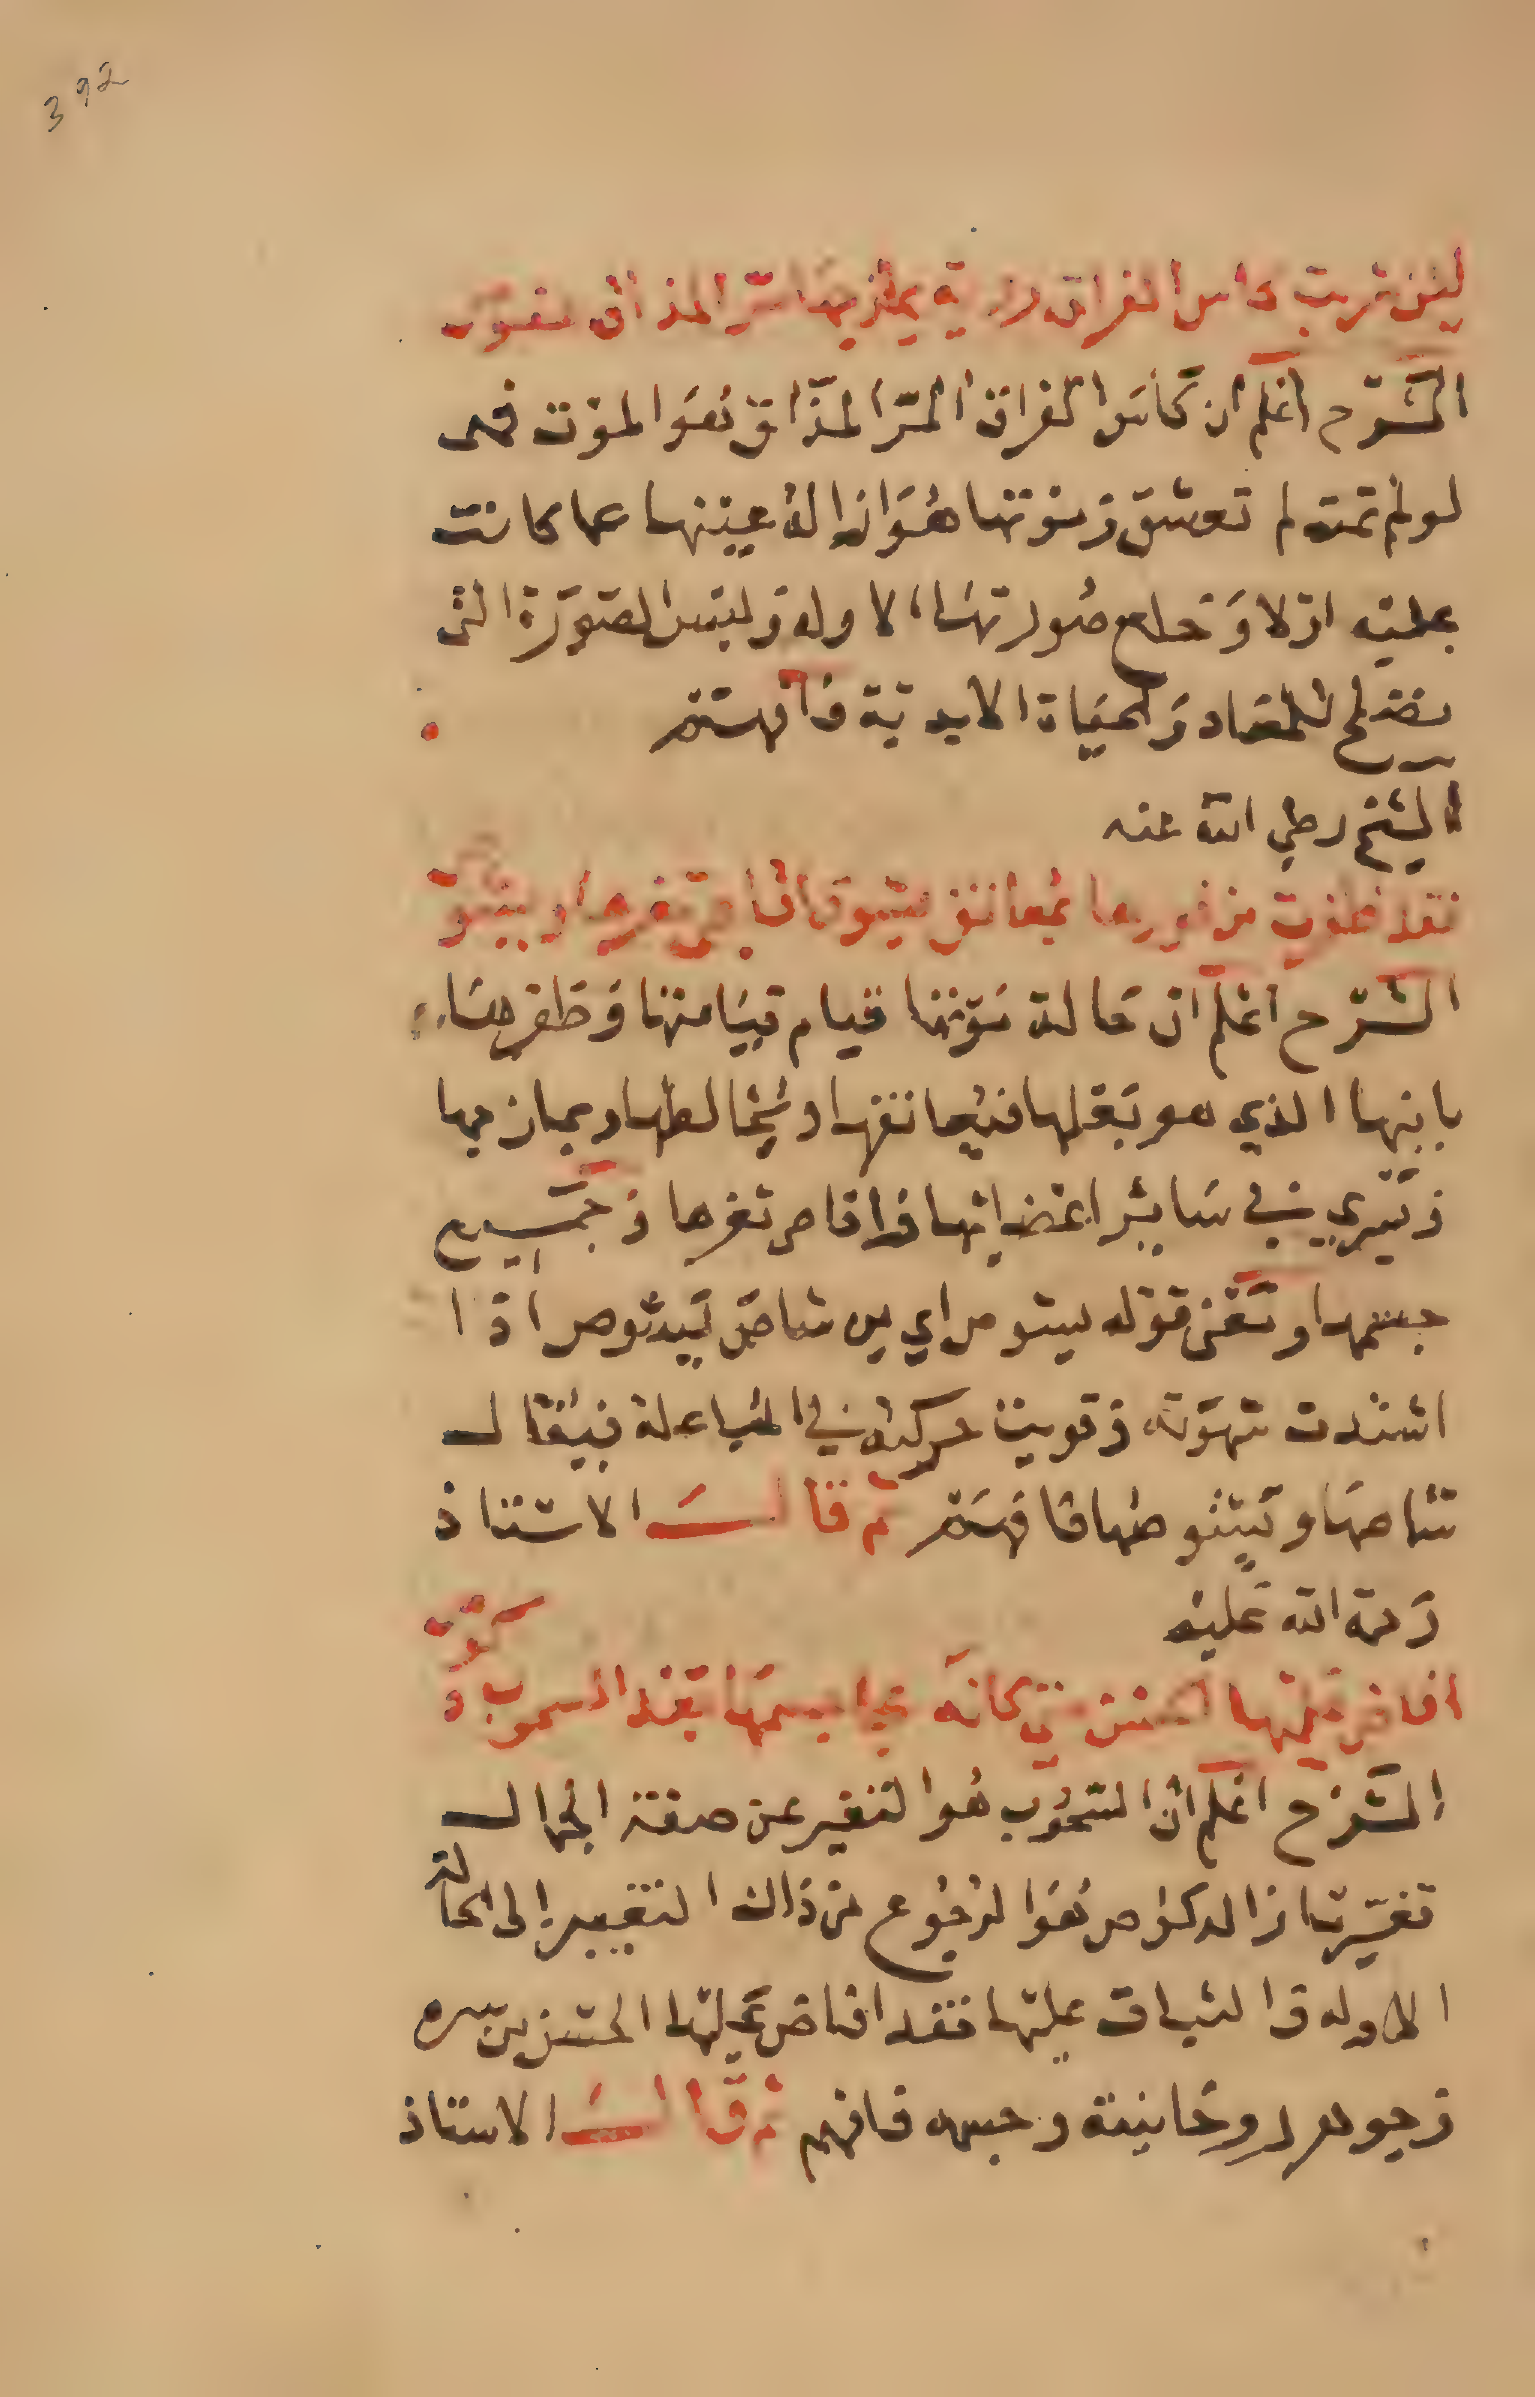 392
لئن شربت كاس الفراق روية يمازجها مر المذاق
الشرح اعلم ان كاس الفراق المر المذاق هو الموت فهى
لو لم تمت لم تعش وموتها هو ازالة عينها عما كانت
عليه اولا وخلع صورتها الاوله ولبس الصورة التى
تصلح للمعاد والحياة الابدية فافهم
الشيخ رضي الله عنه
فقد ظفرت من فورها بمعانق يشوص
الشرح اعلم ان حالة موتها قيام قيامتها وظفرها
بابنها الذي هو بعلها فيعانقها ويخالطها ويمازجها
ويسري في ساير اعضائها فاقاص ثغرها وجميع
جسمها ومعنى قوله يشوص اي من شاص يشوص اذا
اشتدت شهوته وقويت حركته في المباعلة فيقال
شاصها ويشوصها فافهم ثم قال الاستاذ
رحمة الله عليه
افاض عليها الحسن حتى كانه بجسمها بعد الشحوب
الشرح اعلم ان الشحوب هو التغير عن صفة الجمال
تغيرت والنكوص هو الرجوع من ذلك التغيير الى الحالة
الاوله والثبات عليها فقد افاض عليها الحسن من سره
وجوهر روحانيته وجسه فافهم ثم قال الاستاذ